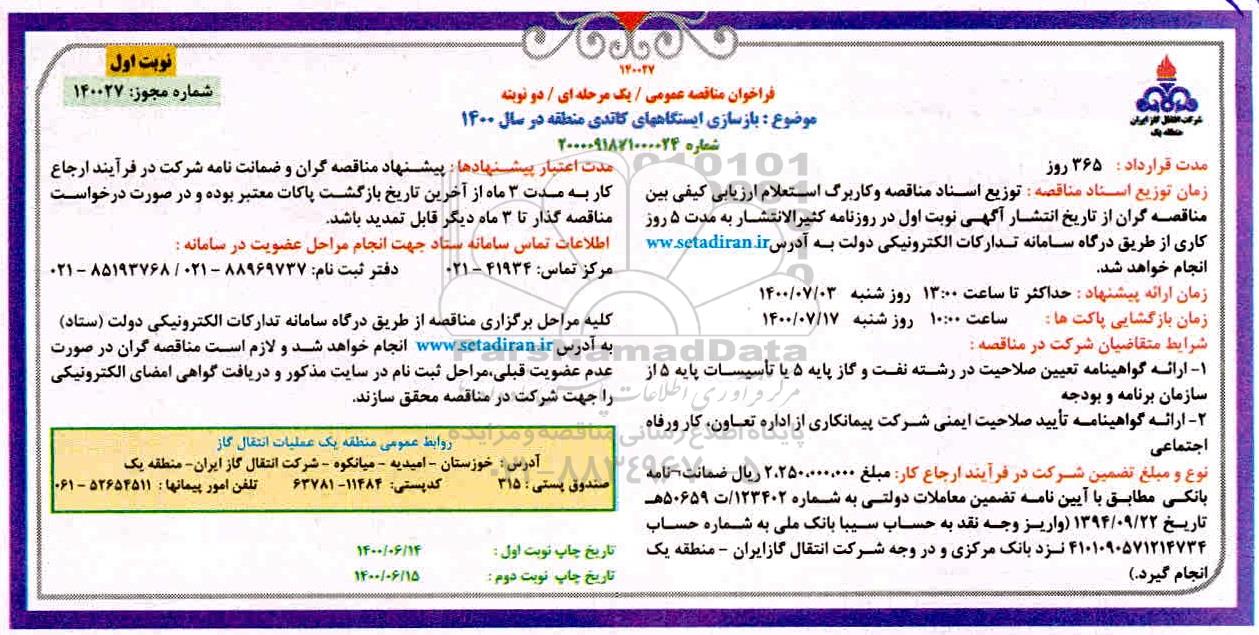 نوبت اول
شماره مجوز: ۱۴۰۰۲۷
۱۴۰۰۲۷
فراخوان مناقصه عمومی / یک مرحله ای / دو نوبته
موضوع : بازسازی ایستگاههای کاتدی منطقه در سال ۱۴۰۰
شماره ۲۰۰۰۰۹۱۸۷۱۰۰۰۰۲۴
شرکت انتقال گاز ایران
منطقه یک
مدت قرارداد : ۳۶۵ روز
زمان توزیع اسناد مناقصه : توزیع اسناد مناقصه وکاربرگ استعلام ارزیابی کیفی بین
مناقصه گران از تاریخ انتشار آگهی نوبت اول در روزنامه کثیرالانتشار به مدت ۵ روز
کاری از طریق درگاه سامانه تدارکات الکترونیکی دولت به آدرس ww.setadiran.ir
انجام خواهد شد.
زمان ارائه پیشنهاد : حداکثر تا ساعت ۱۳:۰۰ روز شنبه ۱۴۰۰/۰۷/۰۳
زمان بازگشایی پاکت ها : ساعت ۱۰:۰۰ روز شنبه ۱۴۰۰/۰۷/۱۷
شرایط متقاضیان شرکت در مناقصه :
۱- ارائه گواهینامه تعیین صلاحیت در رشته نفت و گاز پایه ۵ یا تأسیسات پایه ۵ از
سازمان برنامه و بودجه
۲- ارائه گواهینامه تأیید صلاحیت ایمنی شرکت پیمانکاری از اداره تعاون، کار ورفاه
اجتماعی
نوع و مبلغ تضمین شرکت در فرآیند ارجاع کار: مبلغ ۲.۲۵۰.۰۰۰.۰۰۰ ریال ضمانت¬نامه
بانکی مطابق با آیین نامه تضمین معاملات دولتی به شماره ۱۲۳۴۰۲/ت ۵۰۶۵۹هـ
تاریخ ۱۳۹۴/۰۹/۲۲ (واریز وجه نقد به حساب سیبا بانک ملی به شماره حساب
۴۱۰۱۰۹۰۵۷۱۲۱۴۷۳۴ نزد بانک مرکزی و در وجه شرکت انتقال گازایران - منطقه یک
انجام گیرد.)
مدت اعتبار پیشنهادها : پیشنهاد مناقصه گران و ضمانت نامه شرکت در فرآیند ارجاع
کار به مدت ۳ ماه از آخرین تاریخ بازگشت پاکات معتبر بوده و در صورت درخواست
مناقصه گذار تا ۳ ماه دیگر قابل تمدید باشد.
اطلاعات تماس سامانه ستاد جهت انجام مراحل عضویت در سامانه :
مرکز تماس: ۴۱۹۳۴ - ۰۲۱ دفتر ثبت نام: ۸۸۹۶۹۷۳۷ - ۰۲۱ / ۸۵۱۹۳۷۶۸ - ۰۲۱
کلیه مراحل برگزاری مناقصه از طریق درگاه سامانه تدارکات الکترونیکی دولت (ستاد)
به آدرس www.setadiran.ir انجام خواهد شد و لازم است مناقصه گران در صورت
عدم عضویت قبلی،مراحل ثبت نام در سایت مذکور و دریافت گواهی امضای الکترونیکی
را جهت شرکت در مناقصه محقق سازند.
روابط عمومی منطقه یک عملیات انتقال گاز
آدرس: خوزستان - امیدیه - میانکوه - شرکت انتقال گاز ایران- منطقه یک
صندوق پستی : ۳۱۵ کدپستی: ۱۱۴۸۴- ۶۳۷۸۱ تلفن امور پیمانها : ۵۲۶۵۴۵۱۱ - ۰۶۱
تاریخ چاپ نوبت اول : ۱۴۰۰/۰۶/۱۴
تاریخ چاپ نوبت دوم : ۱۴۰۰/۰۶/۱۵
ParsNamadData
پایگاه اطلاع رسانی مناقصه و مزایده
۰۲۱-۸۸۳۴۹۶۷۰-۵